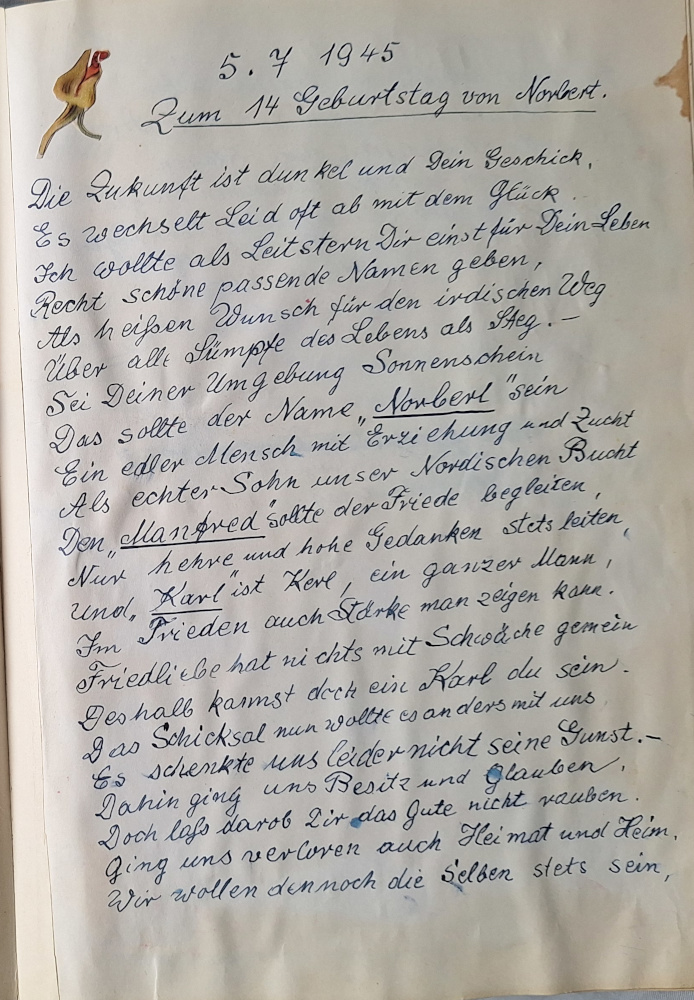 5. 7 1945
Zum 14 Geburtstag von Norbert.
Die Zukunft ist dunkel und Dein Geschick,
Es wechselt Leid oft ab mit dem Glück.
Ich wollte als Leitstern Dir einst für Dein Leben
Recht schöne passende Namen geben,
Als heißen Wunsch für den irdischen Weg
Über alle Sümpfe des Lebens als Steg. –
Sei Deiner Umgebung Sonnenschein
Das sollte der Name „Norbert" sein
Ein edler Mensch mit Erziehung und Zucht
Als echter Sohn unser Nordischen Bucht
Den „Manfred" sollte der Friede begleiten,
Nur hehre und hohe Gedanken stets leiten,
Und „Karl" ist Kerl, ein ganzer Mann,
Im Frieden auch Stärke man zeigen kann.
Friedliebe hat nichts mit Schwäche gemein
Deshalb kannst doch ein Karl du sein.
Das Schicksal nun wollte es anders mit uns
Es schenkte uns leider nicht seine Gunst. –
Dahin ging uns Besitz und Glauben,
Doch laß darob Dir das Gute nicht rauben.
Ging uns verloren auch Heimat und Heim,
Wir wollen dennoch die Selben stets sein,